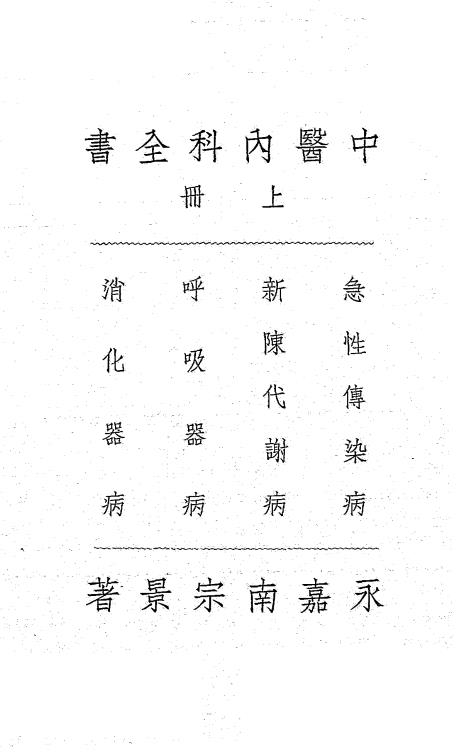 中醫內科全書
上冊
急性傳染病
新陳代謝病
呼吸器病
消化器病
永嘉南宗景著